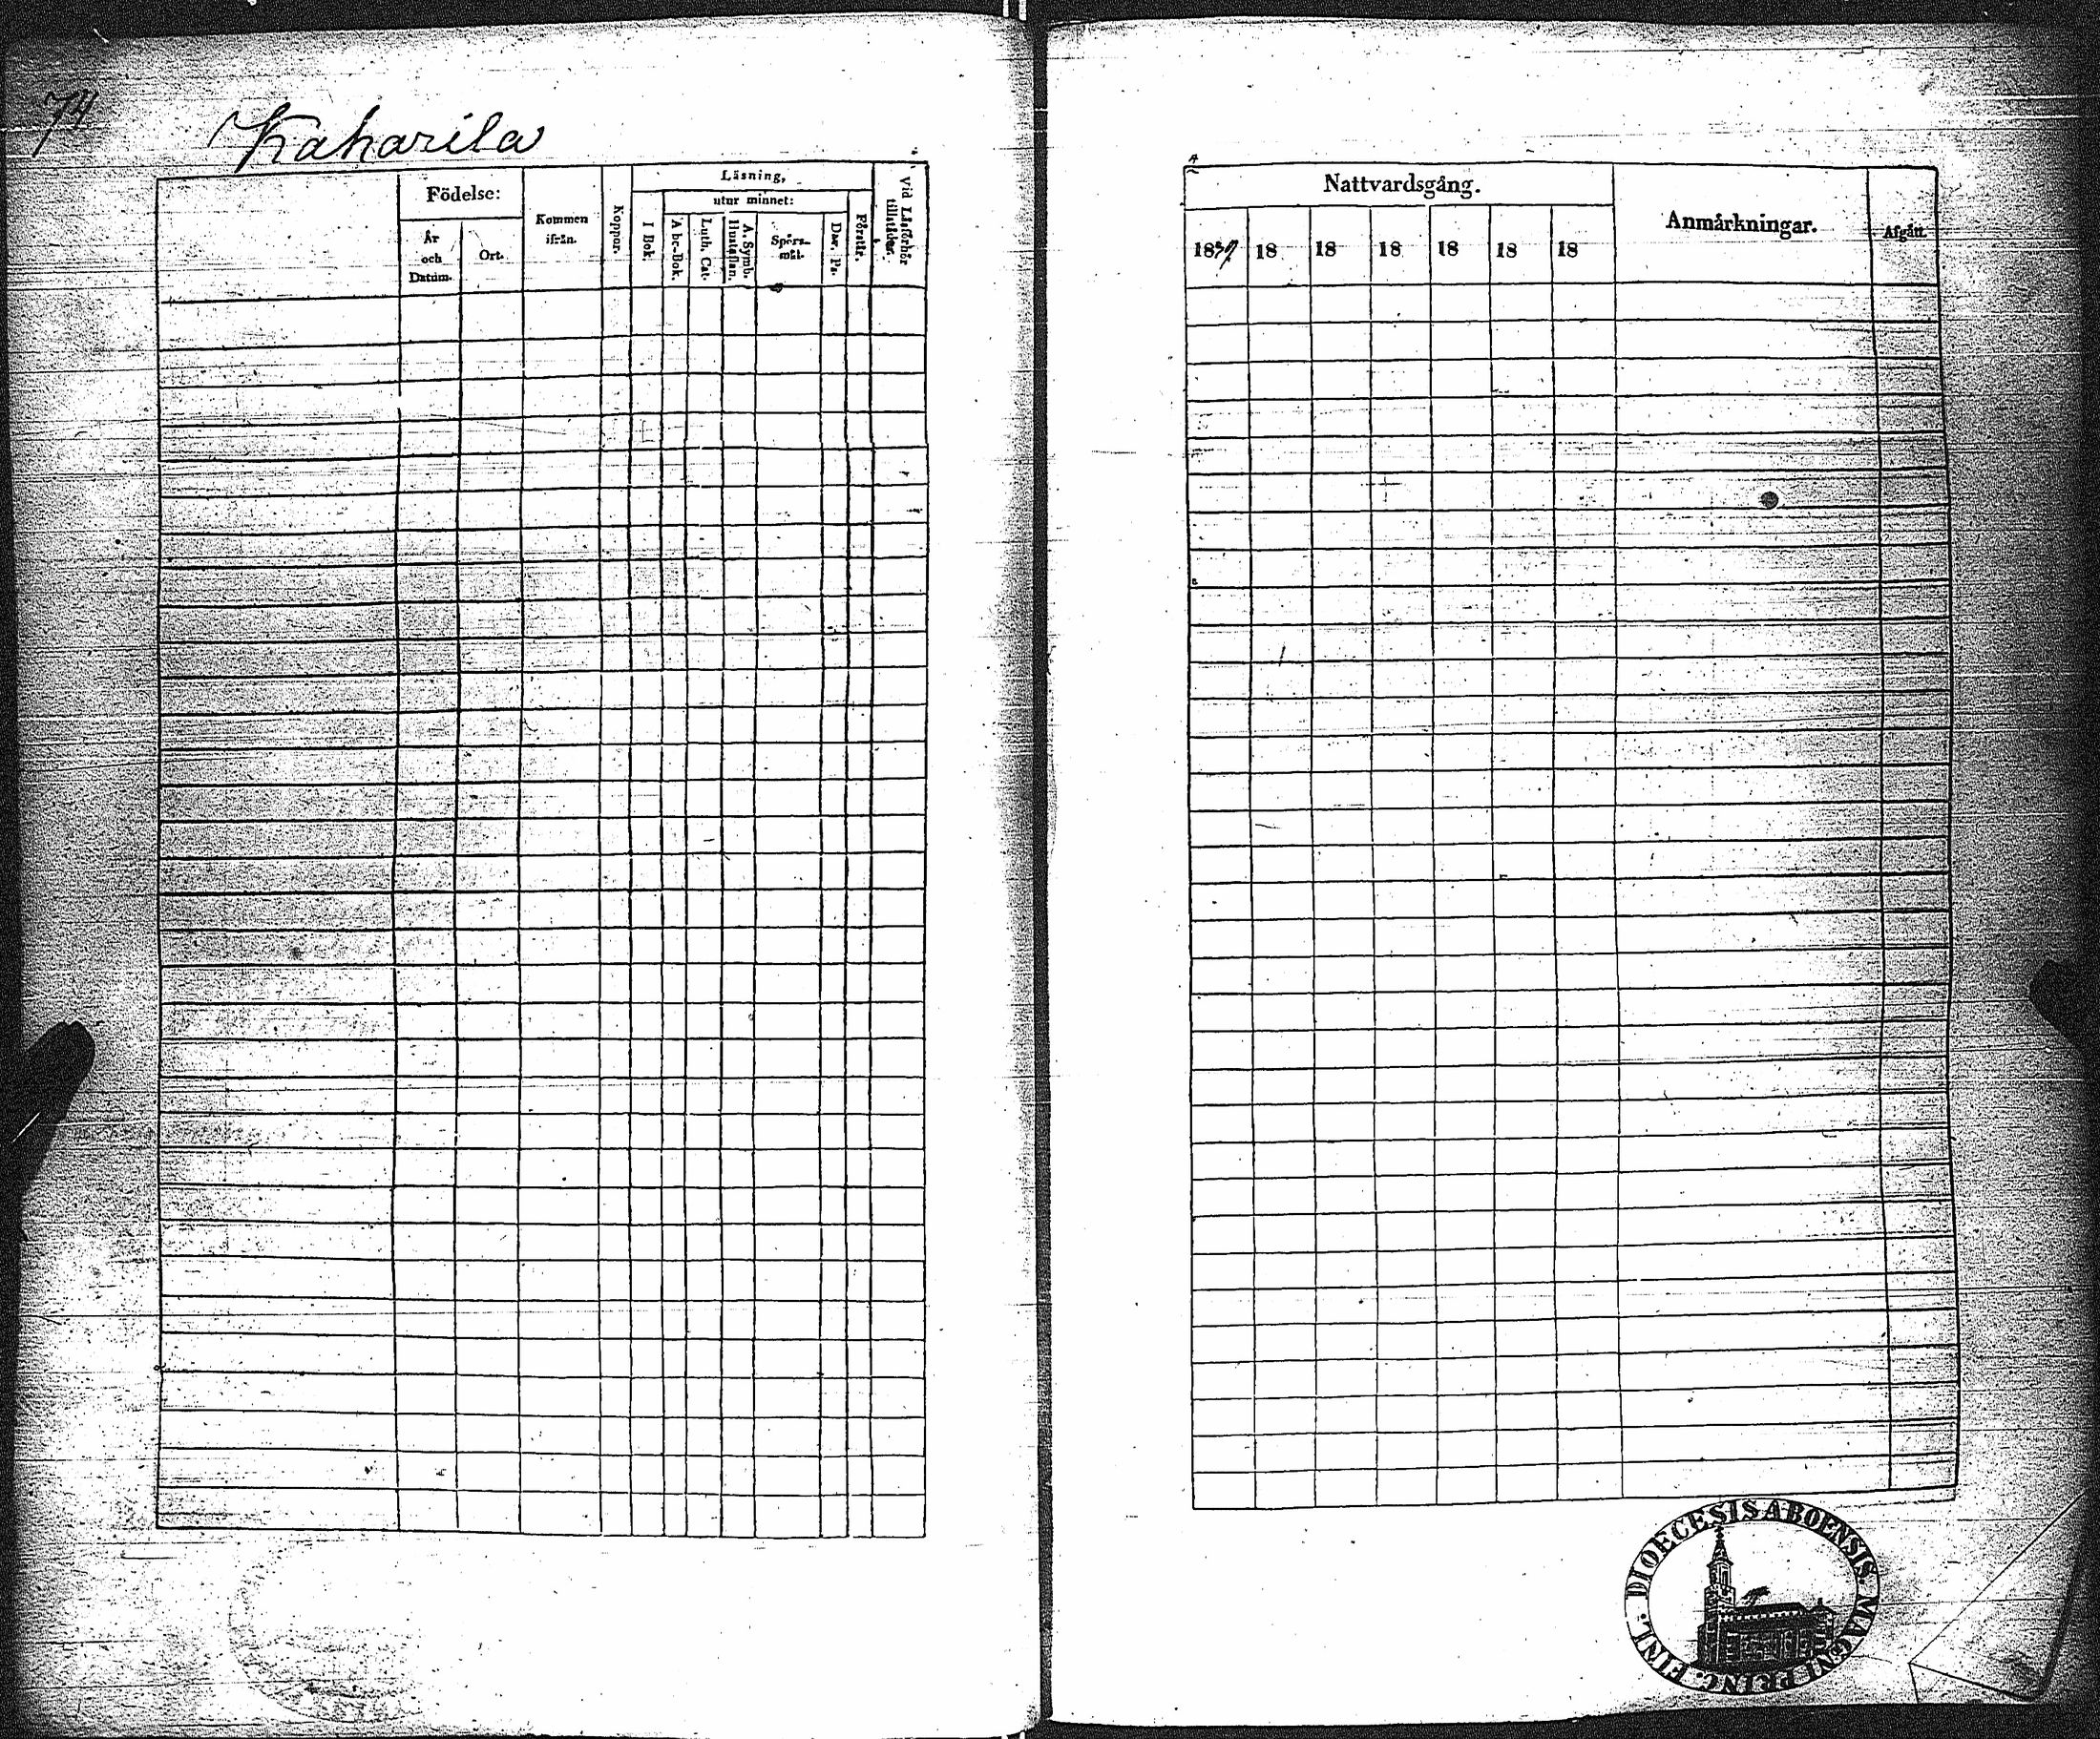 74
Kaharila
Födelse:
År och Datum.
Ort.
Kommen ifrån.
Koppor.
Läsning,
utur minnet:
I Bok.
Abc-Bok.
Luth. Cat.
A. Symb. Hustaflan.
Spörs-mål.
Dav. Ps.
Förstår.
Vid Läsförhör tillstädes.
Nattvardsgång.
1839 18 18 18 18 18 18
Anmärkningar.
Afgått.
DIOECESIS ABOENSIS. MAGNI PRINC. FINL.